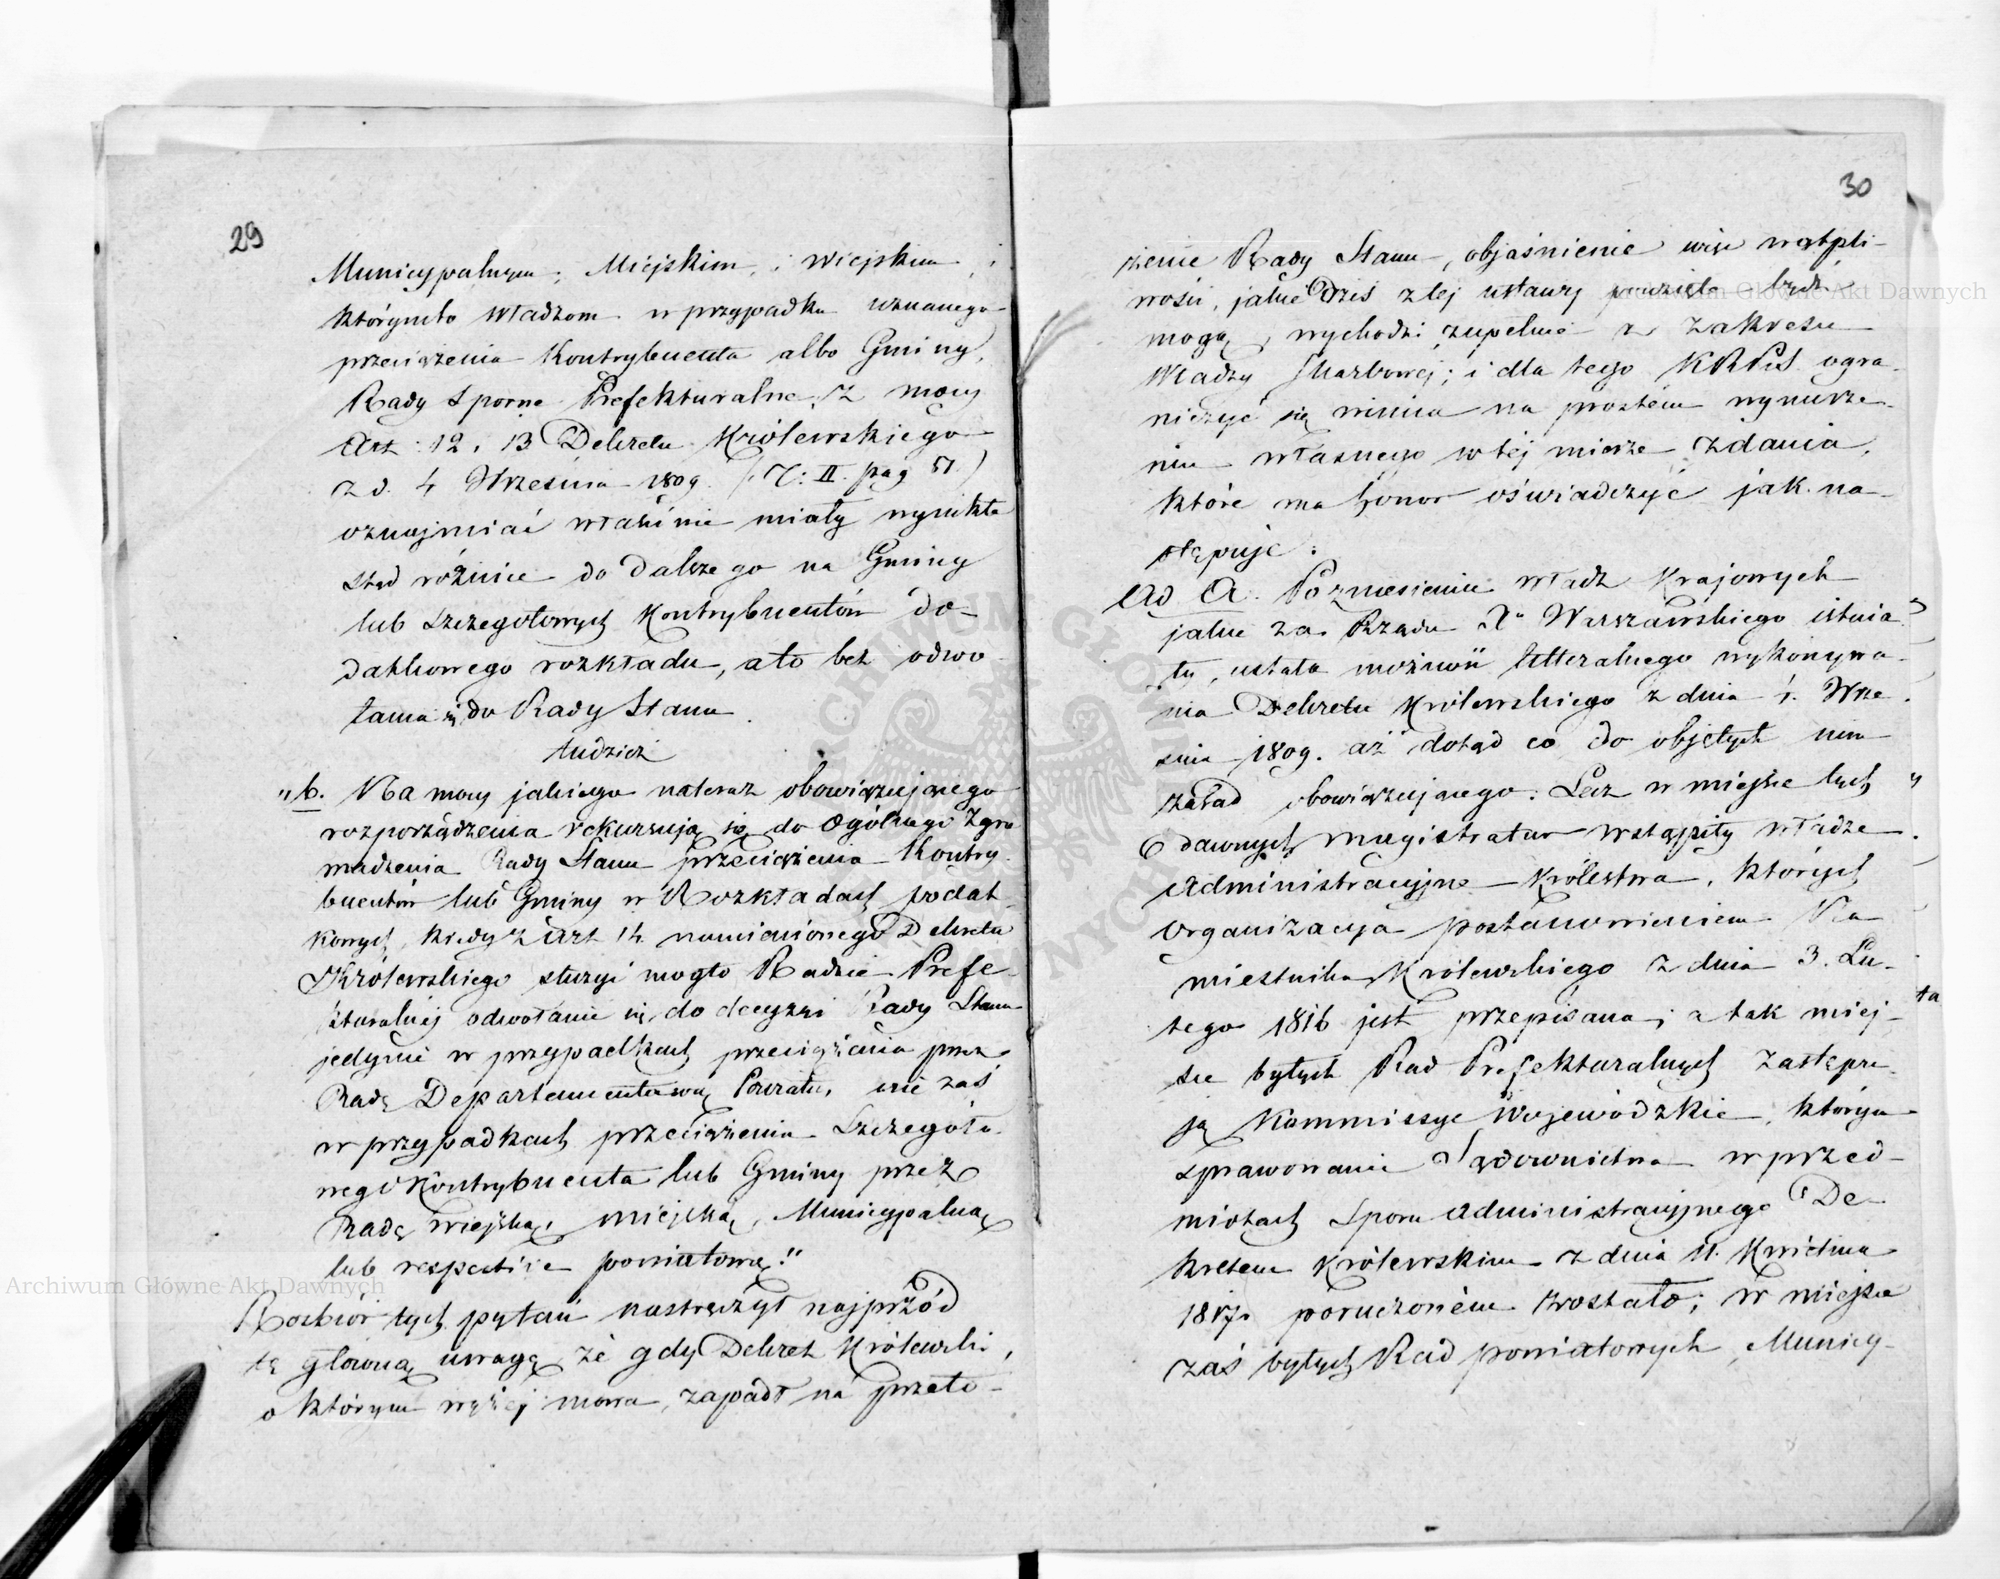 29
Municypalnym, Miejskim, i wiejskim, i
którymto Władzom w przypadku uznanego
przeciążenia Kontrybuenta albo Gminy,
Rady Sporne Prefekturalne, z mocy
Art: 12, 13 Dekretu Królewskiego
z d. 4 Września 1809. (T: II. pag 51.)
oznajmiać właśnie miały wynikłe
stąd różnice do dalszego na Gminy
lub szczegółowych Kontrybuentów do-
datkowego rozkładu, a to bez odwo-
łania się do Rady Stanu.
tudzież
„b. Na mocy jakiego nateraz obowiązującego
rozporządzenia rekursują się do Ogólnego Zgro
madzenia Rady Stanu przeciążenia Kontry
buentów lub Gminy w Rozkładach podat
kowych, kiedy z Art 14 namienionego Dekretu
Królewskiego służyć mogło Radzie Prefe
kturalnej odwołanie się do decyzyi Rady Stanu
jedynie w przypadkach przeciążenia przez
Radę Departamentową Powiatu, nie zaś
w przypadkach przeciążenia Szczegóło
nego Kontrybuenta lub Gminy przez
Radę wiejską, miejską, Municypalną
lub respective powiatową."
Rozbiór tych pytań nastręczył najprzód
tę główną uwagę, że gdy Dekret Królewski,
o którym wyżej mowa, zapadł na przeło-
30
żenie Rady Stanu, objaśnienie więc wątpli-
wości, jakie Dziś z tej ustawy powzięte bydź
mogą, wychodzi zupełnie z Zakresu
Władzy Skarbowej; i dla tego KRPiS ogra-
niczyć się winna na prostem wynurze-
niu własnego w tej mierze zdania,
które ma honor oświadczyć jak na-
stępuje:
Ad A. Po zniesieniu władz Krajowych
jakie za Rządu Xa Warszawskiego istnia
ły, ustała możność litteralnego wykonywa-
nia Dekretu Królewskiego z dnia 4. Wrze
śnia 1809. aż dotąd co do objętych nim
zasad obowiązującego. Lecz w miejsce tych
dawnych magistratur wstąpiły władze
Administracyjne Królestwa, których
Organizacya postanowieniem Na
miestnika Królewskiego z dnia 3. Lu-
tego 1816 jest przepisana; a tak miej-
sce byłych Rad Prefekturalnych zastępu
ją Kommissye Wojewódzkie, którym
sprawowanie Sądownictwa w przed-
miotach Sporu Administracyjnego De-
kretem Królewskim z dnia 11. Kwietnia
1817. poruczonem zostało; w miejsce
zaś byłych Rad powiatowych, Municy-
ta
Archiwum Główne Akt Dawnych
Archiwum Główne Akt Dawnych